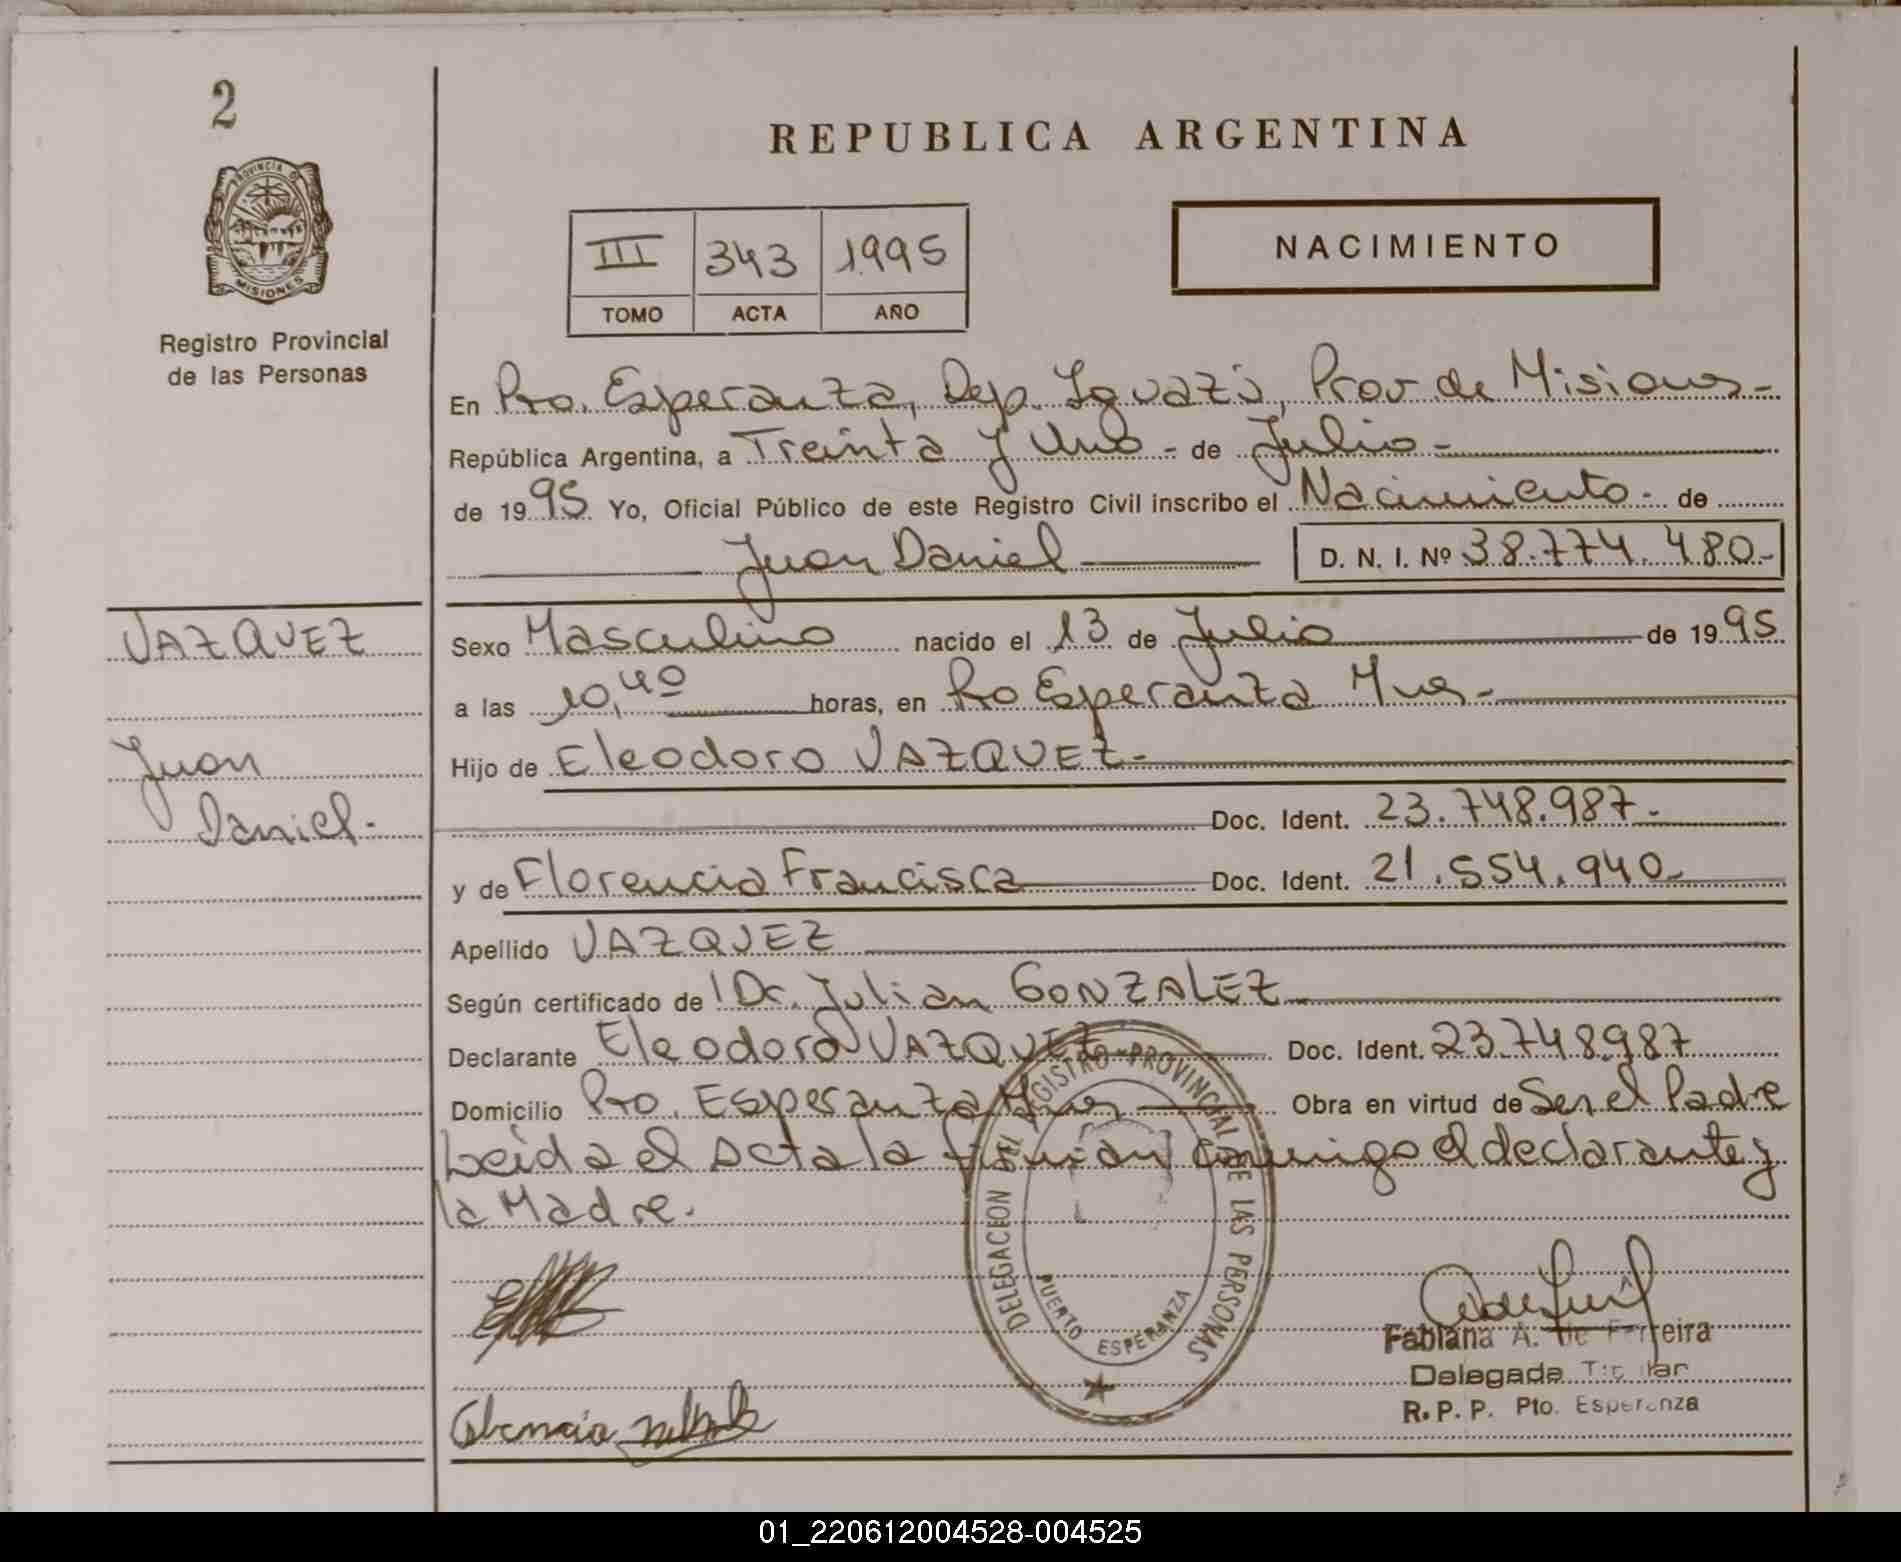 2
PROVINCIA DE
MISIONES
Registro Provincial
de las Personas
REPUBLICA ARGENTINA
III 343 1995
TOMO ACTA AÑO
NACIMIENTO
En Pto. Esperanza, Dep. Iguazú, Prov de Misiones-
República Argentina, a Treinta y Uno - de Julio-
de 1995 Yo, Oficial Público de este Registro Civil inscribo el Nacimiento - de
Juan Daniel D. N. I. Nº 38.774.480-
VAZQUEZ
Juan
Daniel-
Sexo Masculino nacido el 13 de Julio de 1995
a las 10,40 horas, en Pto Esperanza Mnes-
Hijo de Eleodoro VAZQUEZ-
Doc. Ident. 23.748.987-
y de Florencia Francisca Doc. Ident. 21.554.940-
Apellido VAZQUEZ
Según certificado de Dr. Julian GONZALEZ
Declarante Eleodoro VAZQUEZ Doc. Ident. 23.748.987
Domicilio Pto. Esperanza Mnes Obra en virtud de Ser el Padre
Leída el Acta la firman conmigo el declarante y
la Madre.
DELEGACION DEL REGISTRO PROVINCIAL DE LAS PERSONAS
PUERTO ESPERANZA
Fabiana A. de Ferreira
Delegada Titular
R. P. P. Pto. Esperanza
01_220612004528-004525